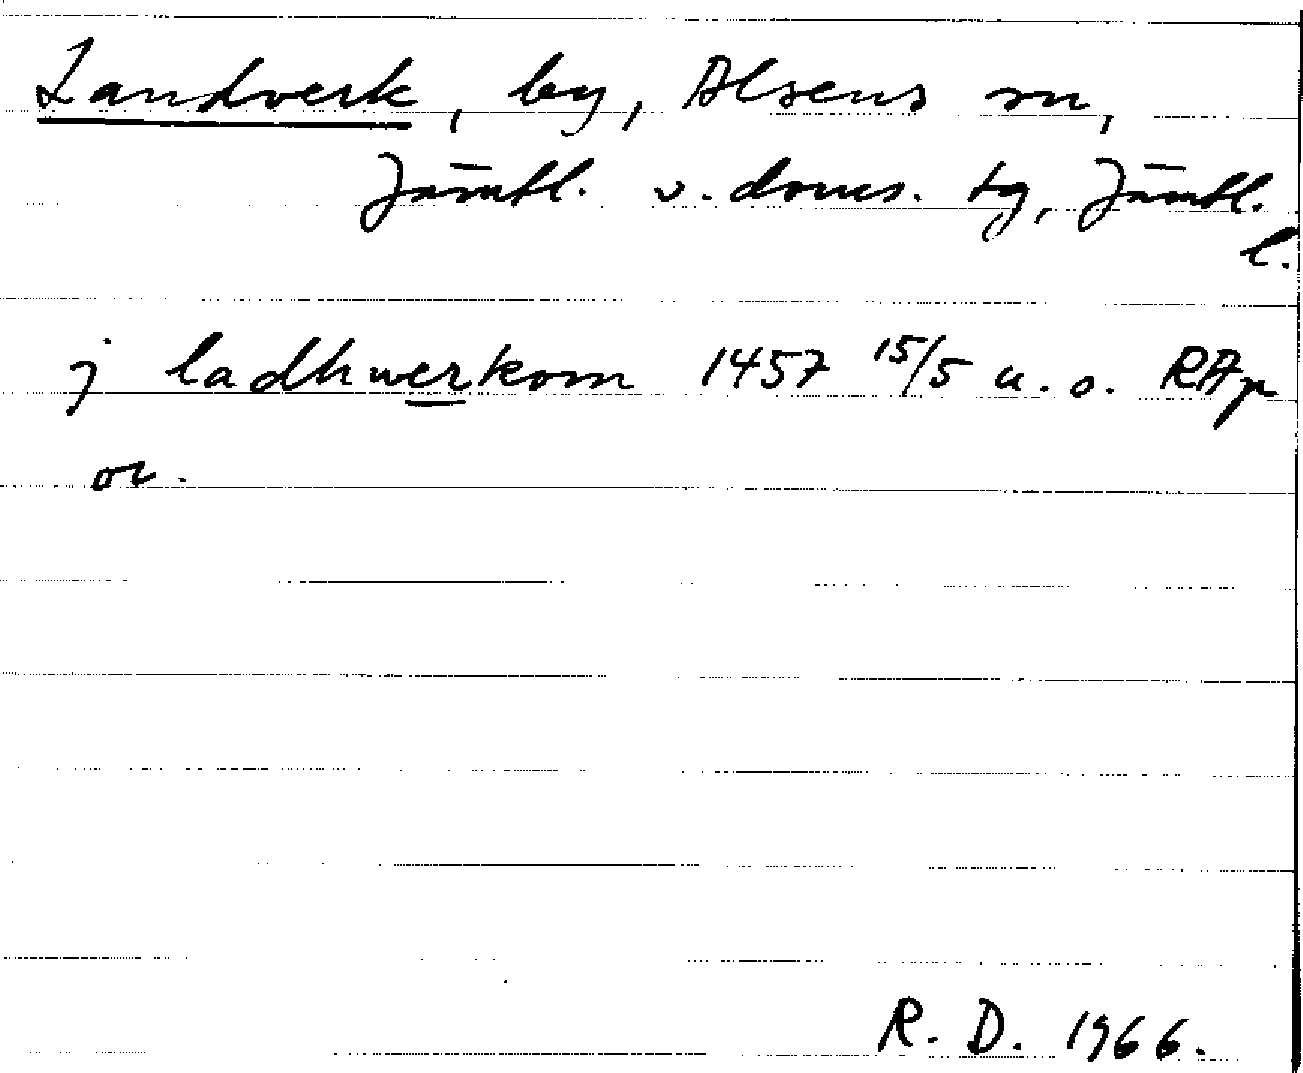 Landverk, by, Alsens sn,
Jämtl. v. doms. tg, Jämtl.
l.
j ladhwerkom 1457 15/5 u. o. RAp
or.
R. D. 1966.